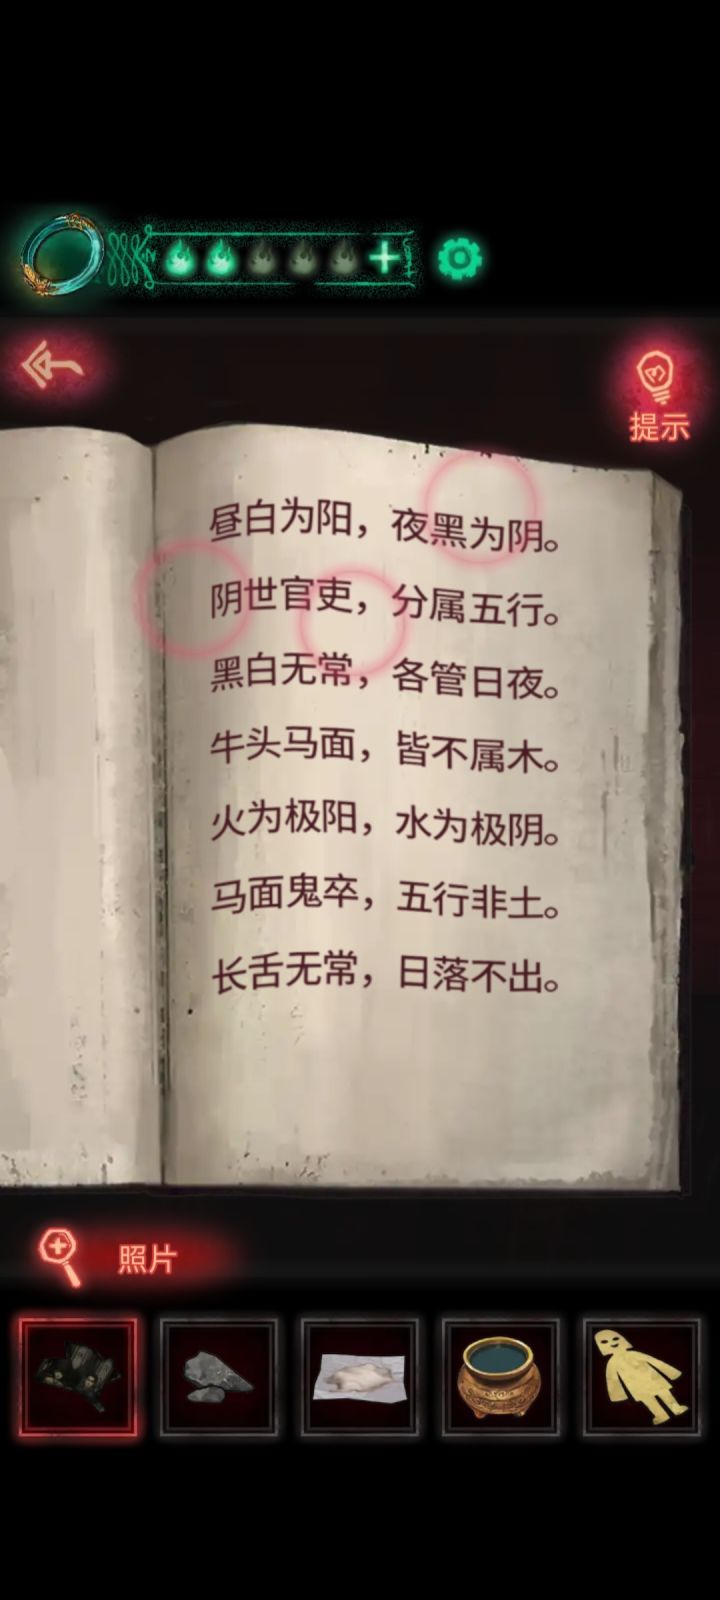 提示
昼白为阳，夜黑为阴。
阴世官吏，分属五行。
黑白无常，各管日夜。
牛头马面，皆不属木。
火为极阳，水为极阴。
马面鬼卒，五行非土。
长舌无常，日落不出。
照片